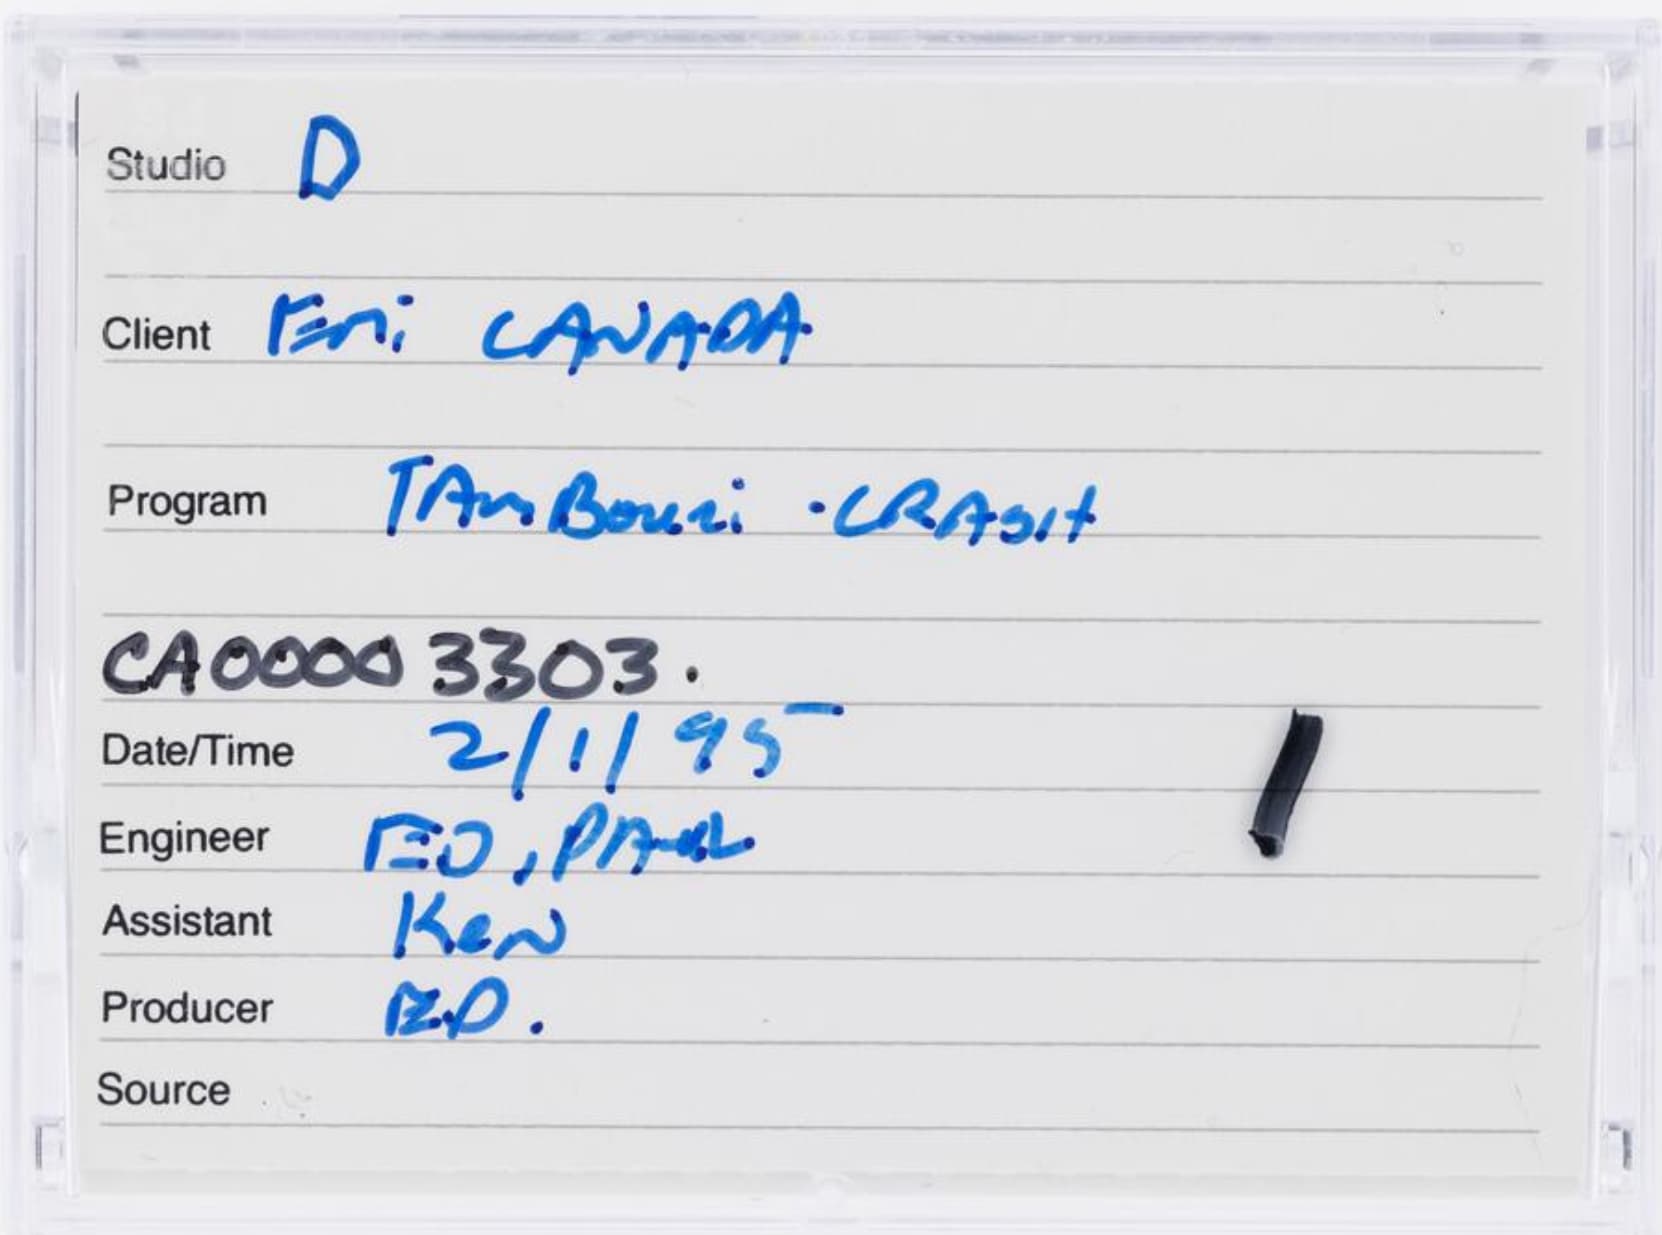 Studio D
Client Emi CANADA
Program TAmBouri · CRASH
CA00003303.
Date/Time 2/1/95
Engineer ED, PAUL
Assistant Ken
Producer ED.
Source